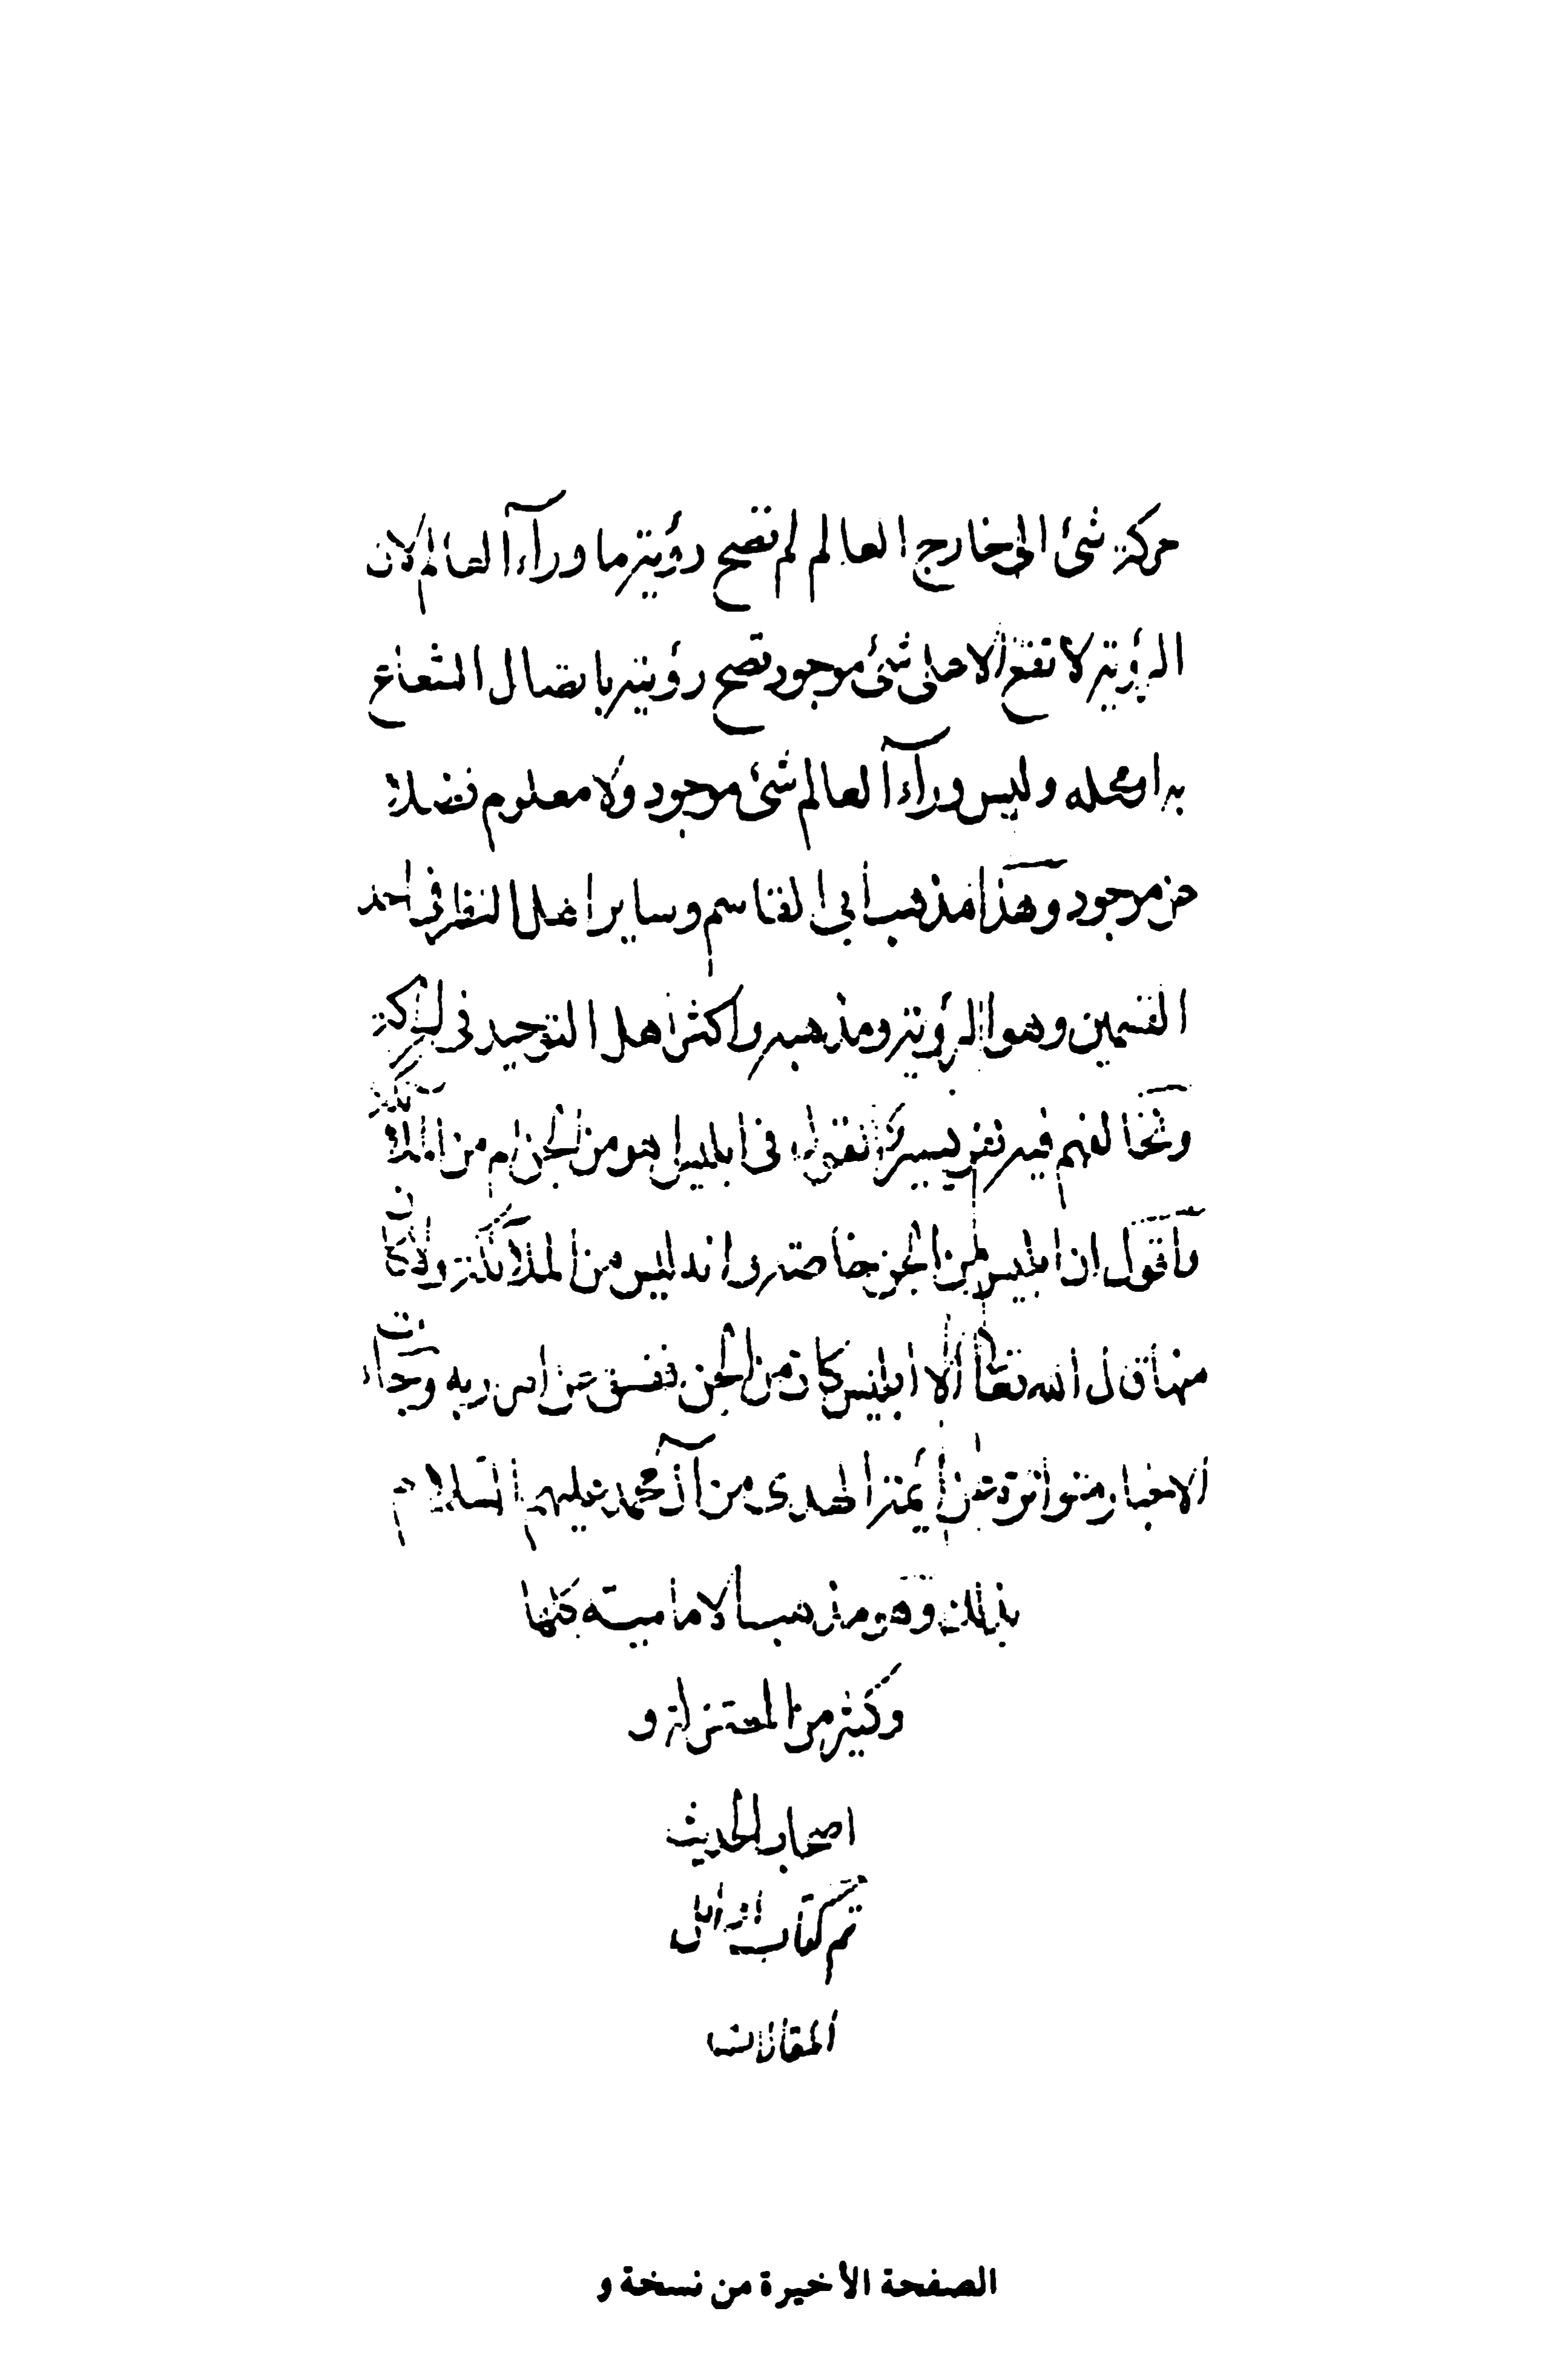 حركة شئ الى خارج العالم لم تصح رؤية ما ورآء العالم لان
الرؤية لا تقع الا على شئ موجود تصح رؤيته باتصال الشعاع
به او محله وليس ورآء العالم شئ موجود ولا معلوم فضلا
عن موجود وهذا مذهب ابى القاسم وساير اهل النظر فى احد
القسمين وهو الرؤية ومذهبه واكثر اهل التوحيد فى
ونخالفهم فيه نفر يسير القول فى ابليس اهو من الجن ام من الملائكة
واقول ان ابليس من الجن خاصة وانه ليس من الملائكة ولا كان
منها قال الله تعالى الا ابليس كان من الجن ففسق عن امر ربه وجاءت
الاخبار متواترة عن ائمة الهدى من آل محمد عليهم السلام
بذلك وهو مذهب الامامية كلها
وكثير من المعتزلة و
اصحاب الحديث
تم كتاب اوائل
المقالات
الصفحة الأخيرة من نسخة و